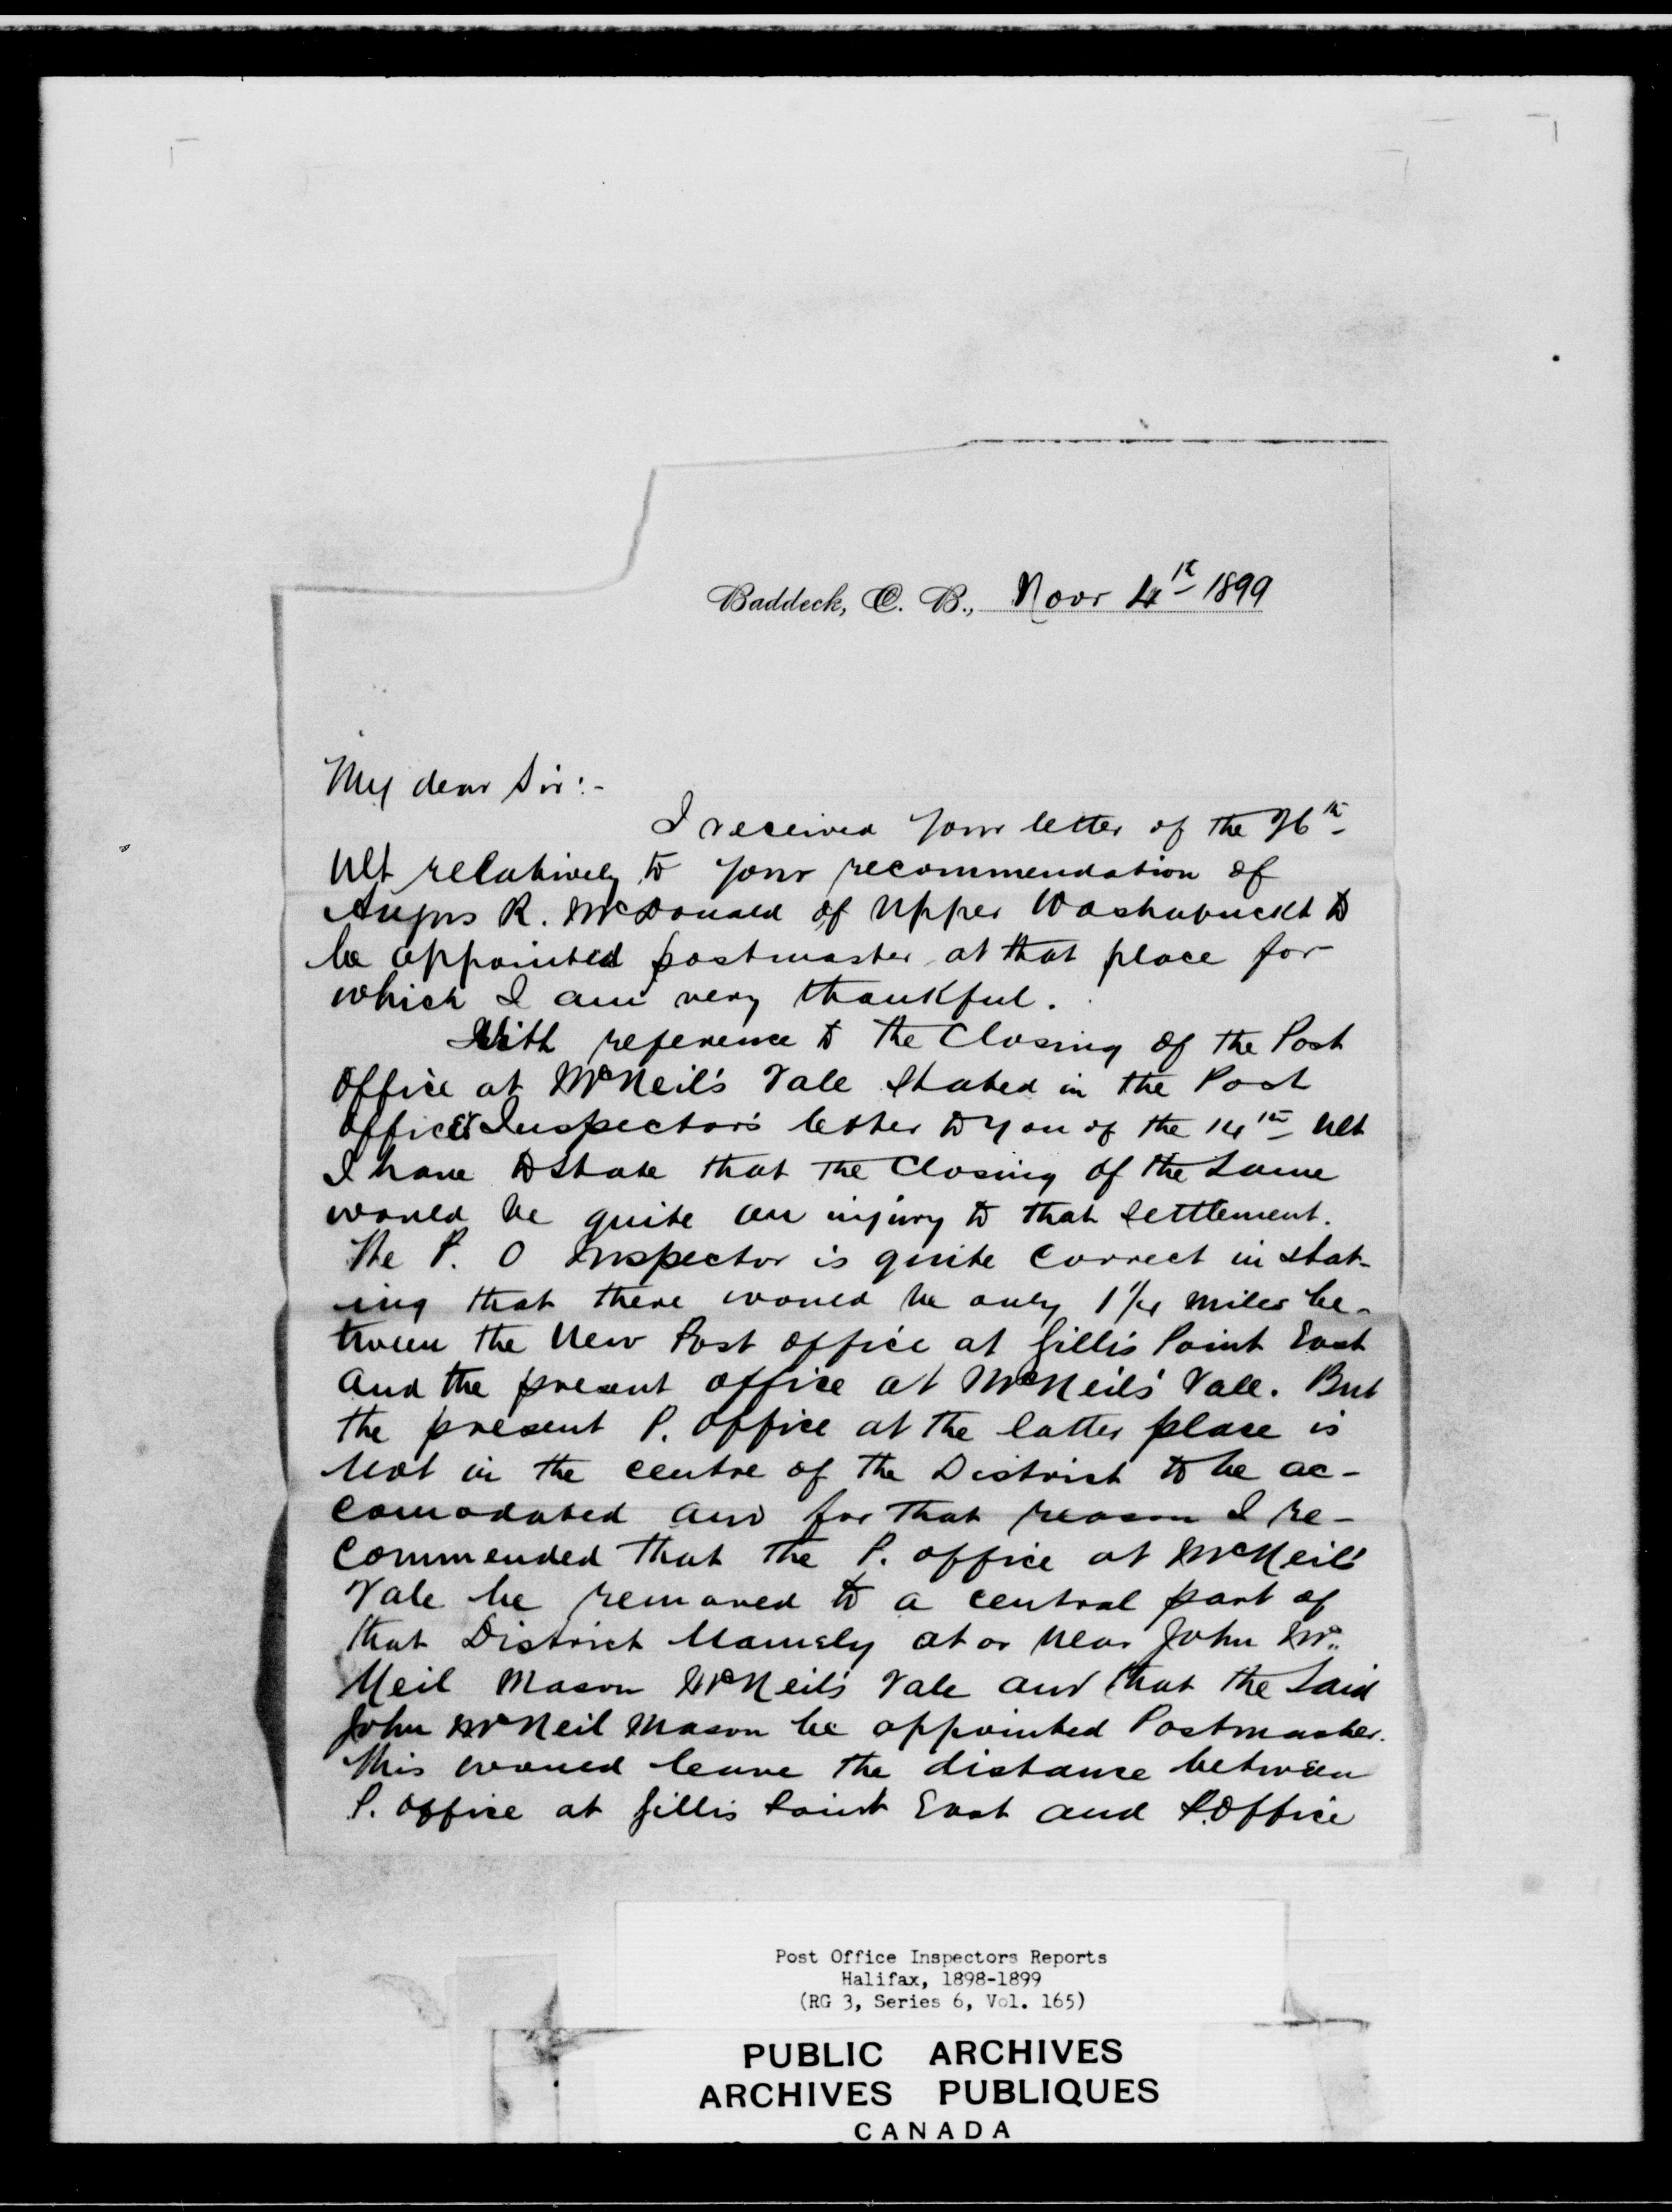 Baddeck, C. B., Novr 4th 1899
My dear Sir:-
I received your letter of the 26th
Ult relatively to your recommendation of
Angus R. McDonald of Upper Washabuckt to
be appointed postmaster at that place for
which I am very thankful.
With reference to the Closing of the Post
Office at McNeil's Vale Stated in the Post
Office Inspector's letter to you of the 14th Ult
I have to State that the Closing of the Same
would be quite an injury to that Settlement.
The P. O Inspector is quite Correct in stat-
ing that there would be only 1 1/4 miles be-
tween the New Post office at Gillis Point East
and the present office at McNeils' Vale. But
the present P. office at the latter place is
Not in the centre of the District to be ac-
comodated and for that reason I re-
commended that the P. office at McNeil's
Vale be removed to a central part of
that District Namely at or Near John Mc
Neil Mason McNeil's Vale and that the Said
John McNeil Mason be appointed Postmaster.
This would leave the distance between
P. Office at Gillis Point East and P. Office
Post Office Inspectors Reports
Halifax, 1898-1899
(RG 3, Series 6, Vol. 165)
PUBLIC ARCHIVES
ARCHIVES PUBLIQUES
CANADA